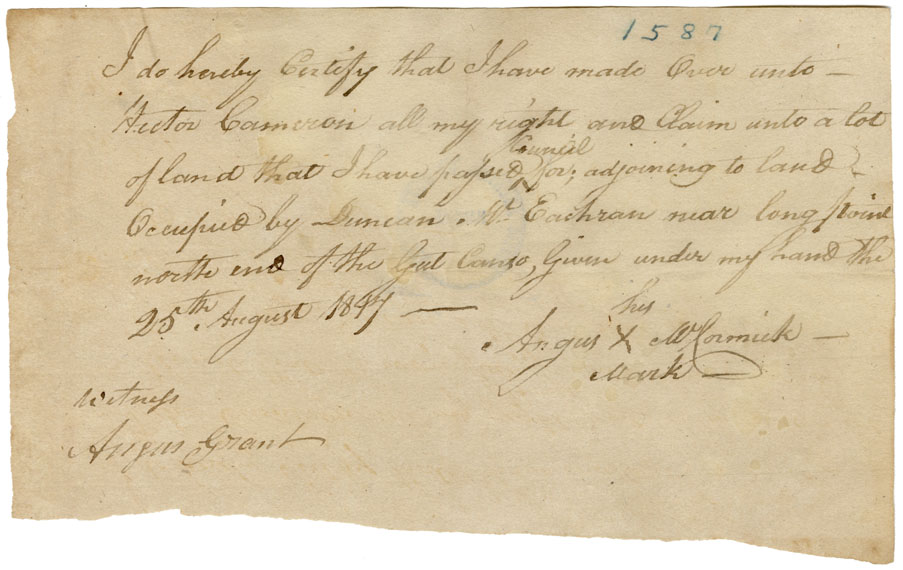 1587
I do hereby Certify that I have made Over unto –
Hector Cameron all my right and Claim unto a lot
of land that I have passed Council for; adjoining to land
Occupied by Duncan Mc Eachran near long point
north end of the Gut Canso, Given under my hand the
25th August 1817 —
his
Angus X McCormick –
Mark –
Witness
Angus Grant